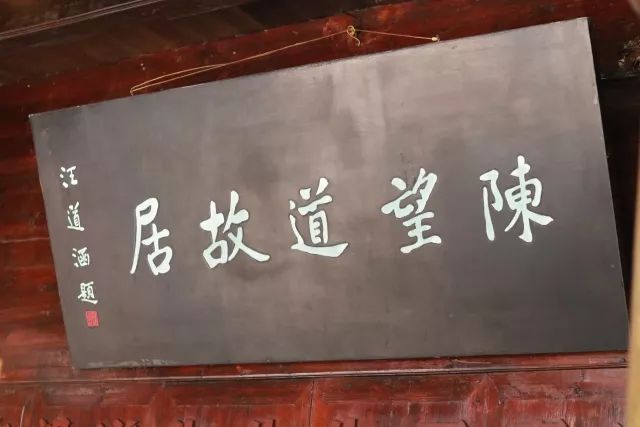 陳望道故居
汪道涵題